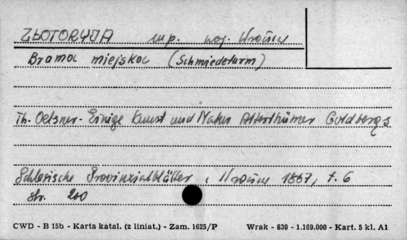 ZŁOTORYJA mp. woj. Wrocław
Brama miejska (Schmiedeturm)
Th. Oelsner - Einige Kunst und Natur Alterthümer Goldbergs
Schlesische Provinzialblätter, Wrocław 1867, t. 6
str. 200
CWD - B 15b - Karta katal. (z liniat.) - Zam. 1625/P Wrak - 830 - 1.169.000 - Kart. 5 kl. A1